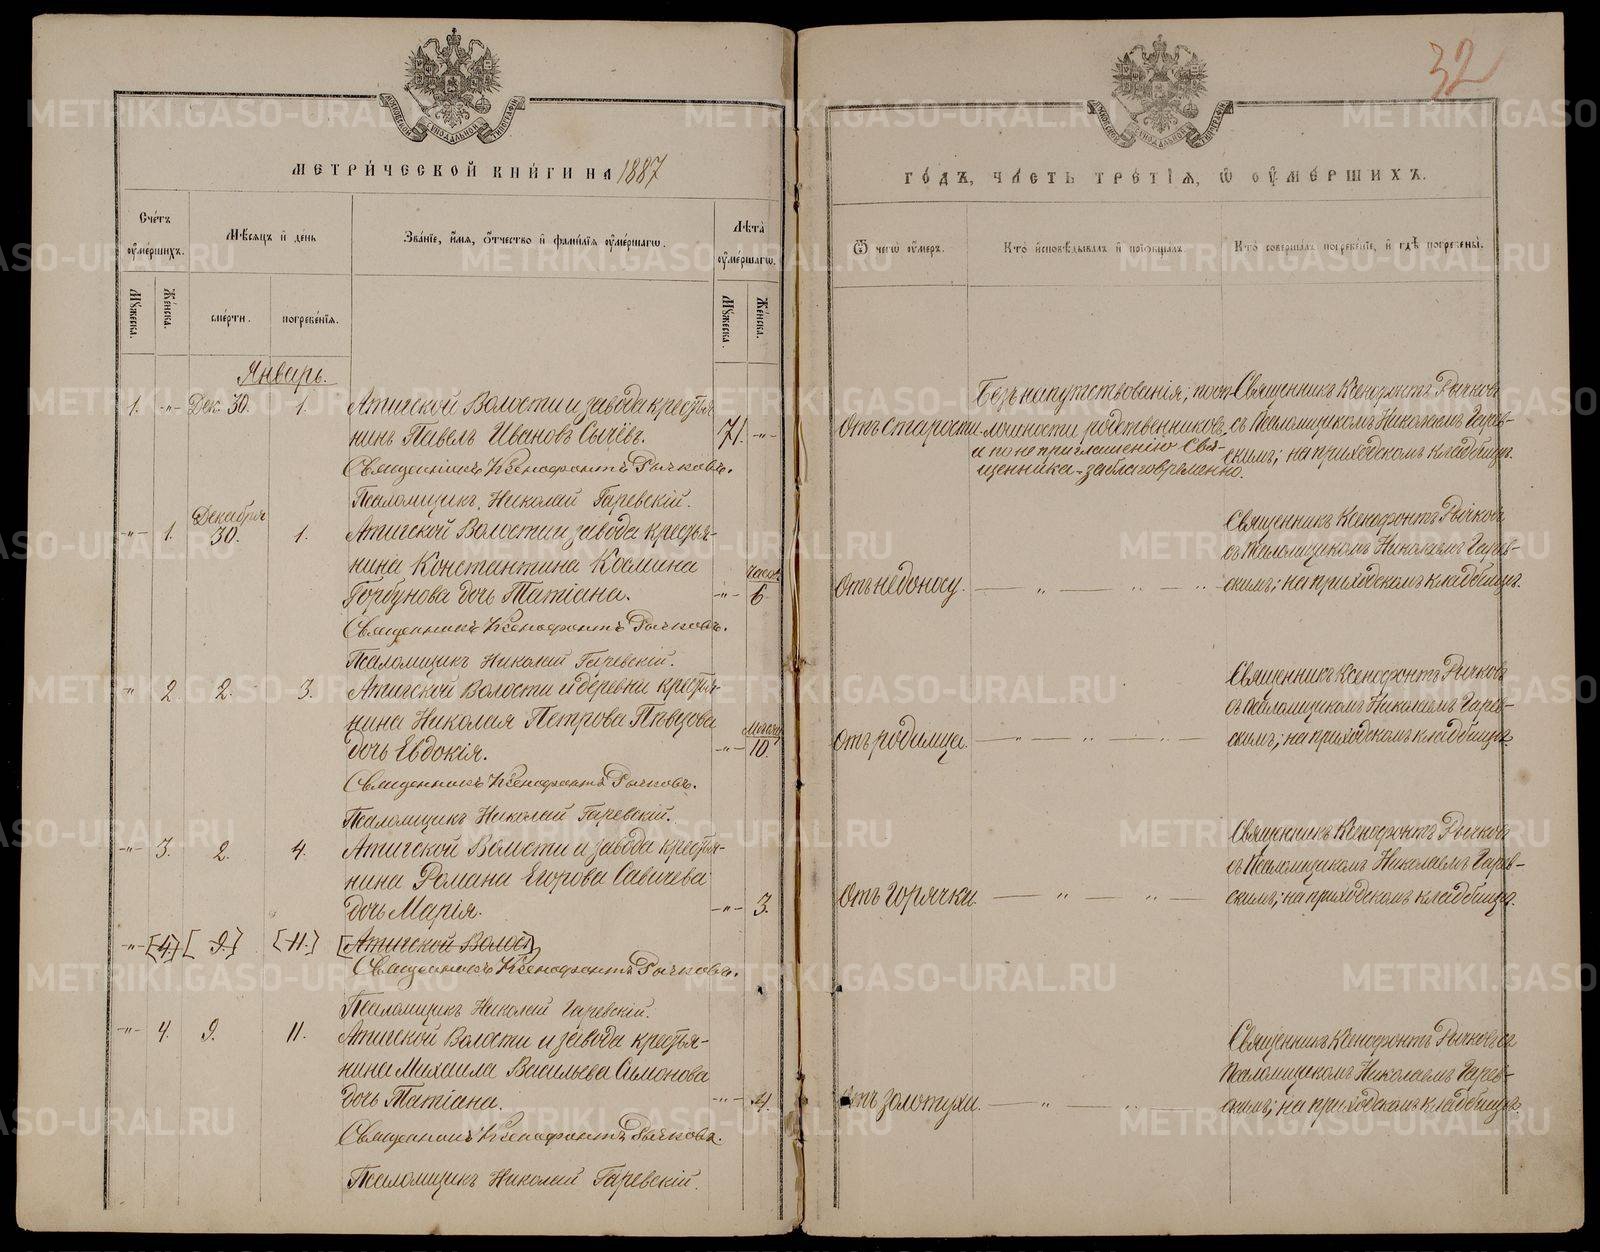 32
МОСКОВСКОЙ СѴНОДАЛЬНОЙ ТИПОГРАФІИ
МОСКОВСКОЙ СѴНОДАЛЬНОЙ ТИПОГРАФІИ
МЕТРИ́ЧЕСКОЙ КНИ́ГИ НА 1887
ГО́ДЪ, ЧА́СТЬ ТРЕ́ТІѦ, Ѡ҆ ОУ҆МЕ́РШИХЪ.
Сче́тъ оу҆ме́ршихъ.
Мѣ́сѧцъ и҆ де́нь
Зва́нїе, и҆́мѧ, ѻ҆́тчество и҆ фами́лїѧ оу҆ме́ршагѡ.
Лѣ́та оу҆ме́ршагѡ.
Ѿ чегѡ̀ оу҆́меръ.
Кто̀ и҆сповѣ́дывалъ и҆ прїѡбща́лъ.
Кто̀ соверша́лъ погребе́нїе, и҆ гдѣ̀ погребены̀.
Мꙋ́жеска.
Же́нска.
сме́рти.
погребе́нїѧ.
Мꙋ́жеска.
Же́нска.
Январь.
1. -"- Дек. 30. 1. Атигской Волости и завода крестья-
нинъ Павелъ Ивановъ Сычёвъ. 71. -"-
Священникъ Ксенофонтъ Рычковъ.
Псаломщикъ Николай Гаревскій.
Отъ старости
Безъ напутствованія; по
мошности родственниковъ
и по не приглашенію Свя-
щенника заблаговременно.
Священникъ Ксенофонтъ Рычковъ
съ Псаломщикомъ Николаемъ Гарев-
скимъ; на приходскомъ кладбищѣ.
Декабря
-"- 1. 30. 1. Атигской Волости и завода крестья-
нина Константина Космина
Горбунова дочь Татіана. -"- часов 6.
Священникъ Ксенофонтъ Рычковъ.
Псаломщикъ Николай Гаревскій.
Отъ недоносу. — " — " — "
Священникъ Ксенофонтъ Рычковъ
съ Псаломщикомъ Николаемъ Гарев-
скимъ; на приходскомъ кладбищѣ.
" 2. 2. 3. Атигской Волости и деревни крестья-
нина Николая Петрова Пѣвцова
дочь Евдокія. -"- месяц 10.
Священникъ Ксенофонтъ Рычковъ.
Псаломщикъ Николай Гаревскій.
Отъ родимца. — " — " — "
Священникъ Ксенофонтъ Рычковъ
съ Псаломщикомъ Николаемъ Гарев-
скимъ; на приходскомъ кладбищѣ.
-"- 3. 2. 4. Атигской Волости и завода крестья-
нина Романа Егорова Савичева
дочь Марія. -"- 3.
Отъ горячки. — " — " —
Священникъ Ксенофонтъ Рычковъ
съ Псаломщикомъ Николаемъ Гарев-
скимъ; на приходскомъ кладбищѣ.
-"- [4.] [9.] [11.] [Атигской Волос]
Священникъ Ксенофонтъ Рычковъ.
Псаломщикъ Николай Гаревскій.
-"- 4. 9. 11. Атигской Волости и завода крестья-
нина Михаила Васильева Симонова
дочь Татіана. -"- 4.
Священникъ Ксенофонтъ Рычковъ.
Псаломщикъ Николай Гаревскій.
Отъ золотухи. — " — " —
Священникъ Ксенофонтъ Рычковъ съ
Псаломщикомъ Николаемъ Гарев-
скимъ; на приходскомъ кладбищѣ.
METRIKI.GASO-URAL.RU